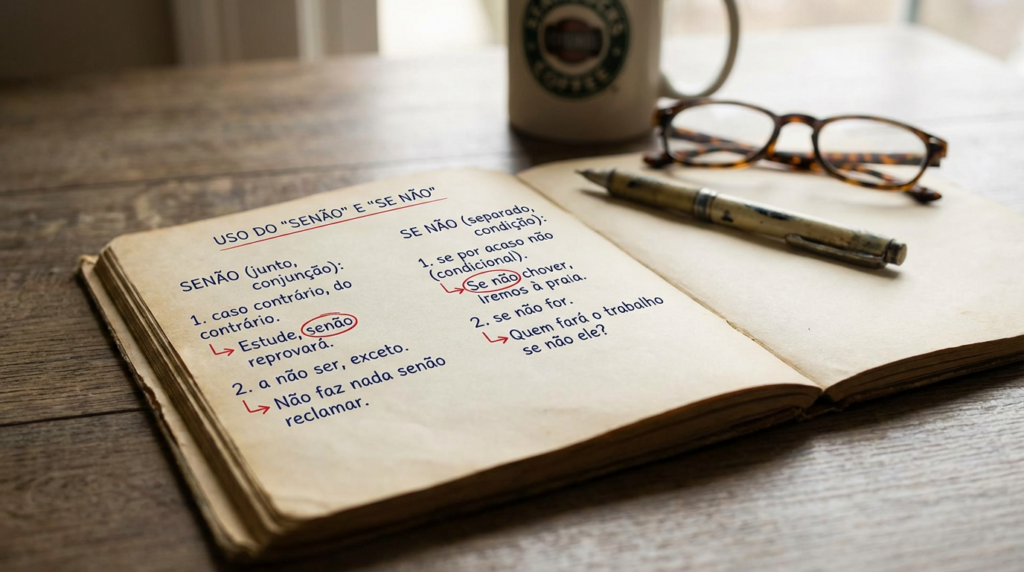 STARBUCKS
COFFEE
USO DO "SENÃO" E "SE NÃO"
SENÃO (junto,
conjunção):
1. caso contrário, do
contrário.
↳ Estude, senão
reprovará.
2. a não ser, exceto.
↳ Não faz nada senão
reclamar.
SE NÃO (separado,
condição):
1. se por acaso não
(condicional).
↳ Se não chover,
Iremos à praia.
2. se não for.
↳ Quem fará o trabalho
se não ele?